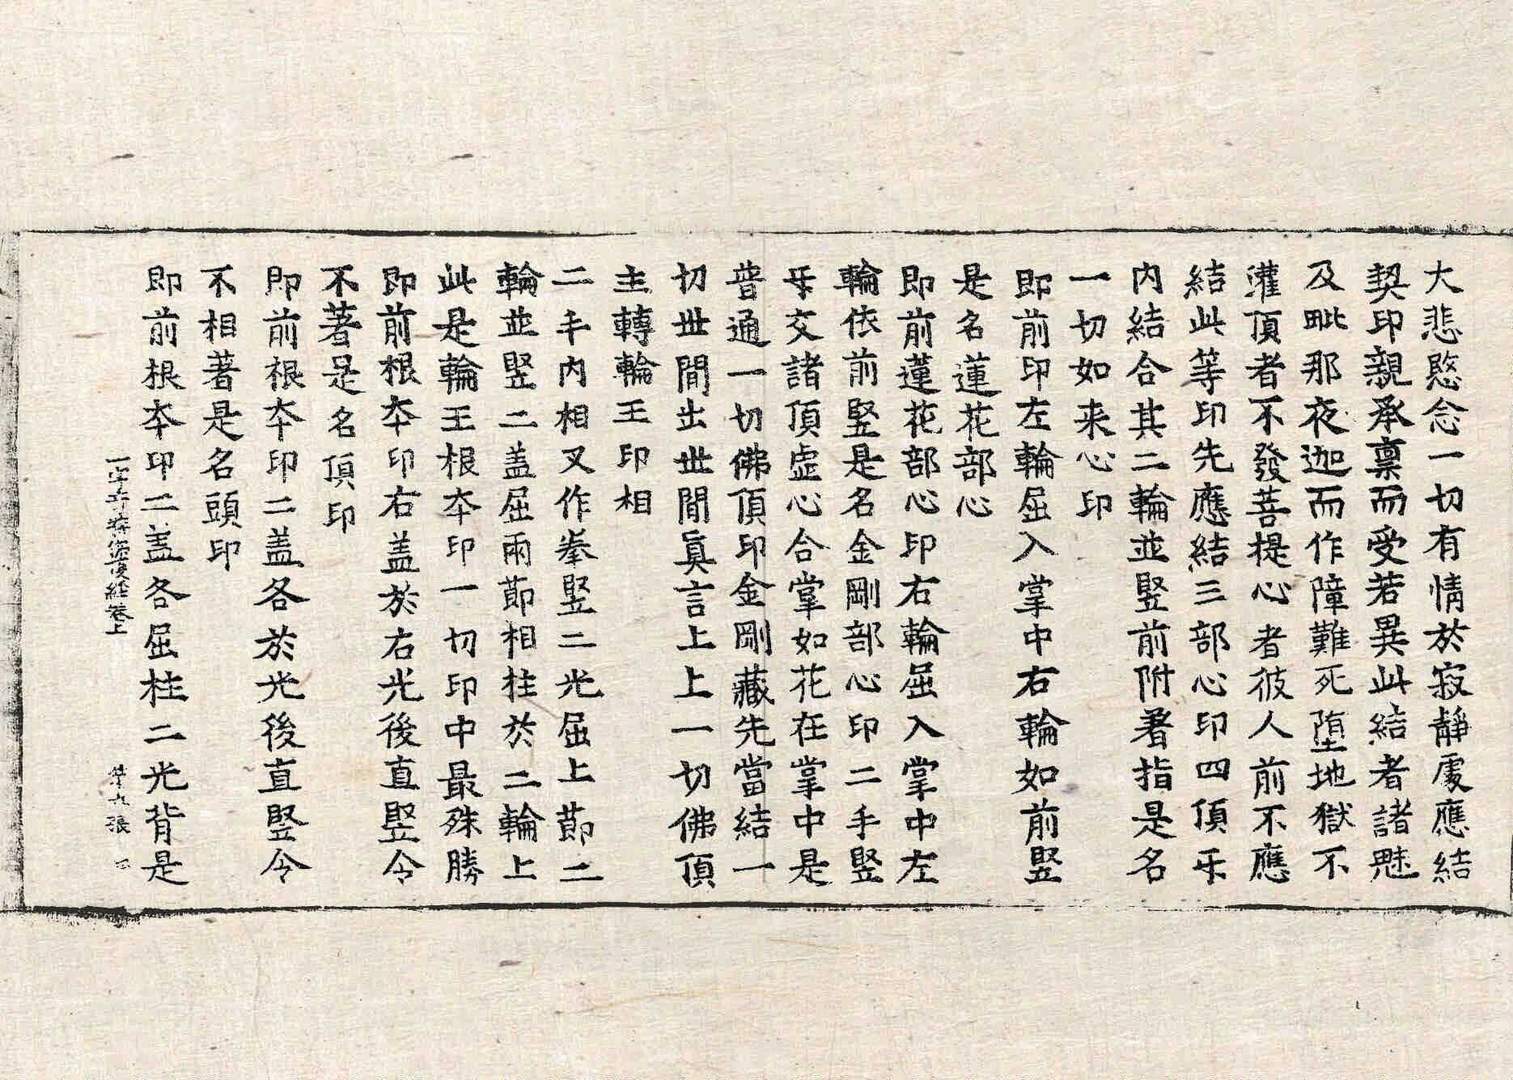 大悲愍念一切有情於寂靜處應結
契印親承稟而受若異此結者諸魅
及毗那夜迦而作障難死墮地獄不
灌頂者不發菩提心者彼人前不應
結此等印先應結三部心印四頂乐
內結合其二輪並竪前附著指是名
一切如来心印
即前印左輪屈入掌中右輪如前竪
是名蓮花部心
即前蓮花部心印右輪屈入掌中左
輪依前竪是名金剛部心印二手竪
乐交諸頂虛心合掌如花在掌中是
普通一切佛頂印金剛藏先當結一
切世間出世間真言上上一切佛頂
主轉輪王印相
二手內相叉作拳竪二光屈上節二
輪並竪二盖屈兩節相柱於二輪上
此是輪王根夲印一切印中最殊勝
即前根夲印右盖於右光後直竪令
不著是名頂印
即前根夲印二盖各於光後直竪令
不相著是名頭印
即前根夲印二盖各屈柱二光背是
一字奇特佛頂經卷上 第九張